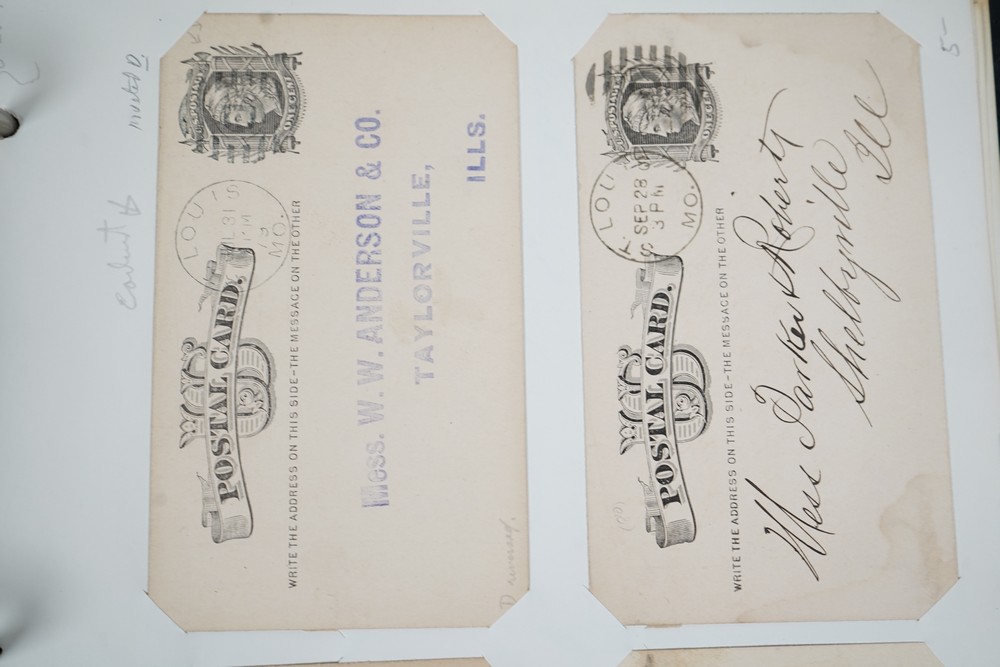 U.S. POSTAGE
ONE CENT
LOUIS
L 31
PM
MO.
US
POSTAL CARD.
WRITE THE ADDRESS ON THIS SIDE-THE MESSAGE ON THE OTHER
Mess. W. W. ANDERSON & CO.
TAYLORVILLE,
ILLS.
U.S. POSTAGE
ONE CENT
LOUI
SEP 28
3 PM
MO.
US
POSTAL CARD.
WRITE THE ADDRESS ON THIS SIDE-THE MESSAGE ON THE OTHER
Mess Parker & Roberts
Shelbyville
Ill
5-